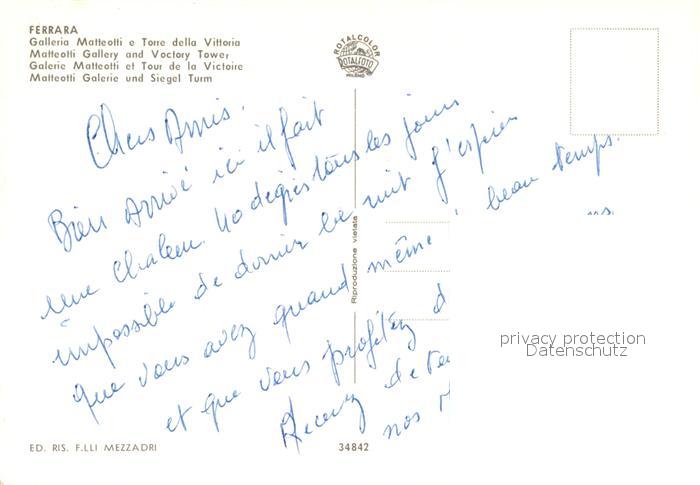 FERRARA
Galleria Matteotti e Torre della Vittoria
Matteotti Gallery and Voctory Tower
Galerie Matteotti et Tour de la Victoire
Matteotti Galerie und Siegel Turm
ROTALCOLOR
ROTALFOTO
MILANO
Chers Amis.
Bien Arrivé ici il fait
une Chaleur. 40 degrés tous les jours
impossible de dormir la nuit J'espère
que vous avez quand même beau temps.
et que vous profitez d
Recevez de
nos
Riproduzione vietata
privacy protection
Datenschutz
ED. RIS. F.LLI MEZZADRI
34842